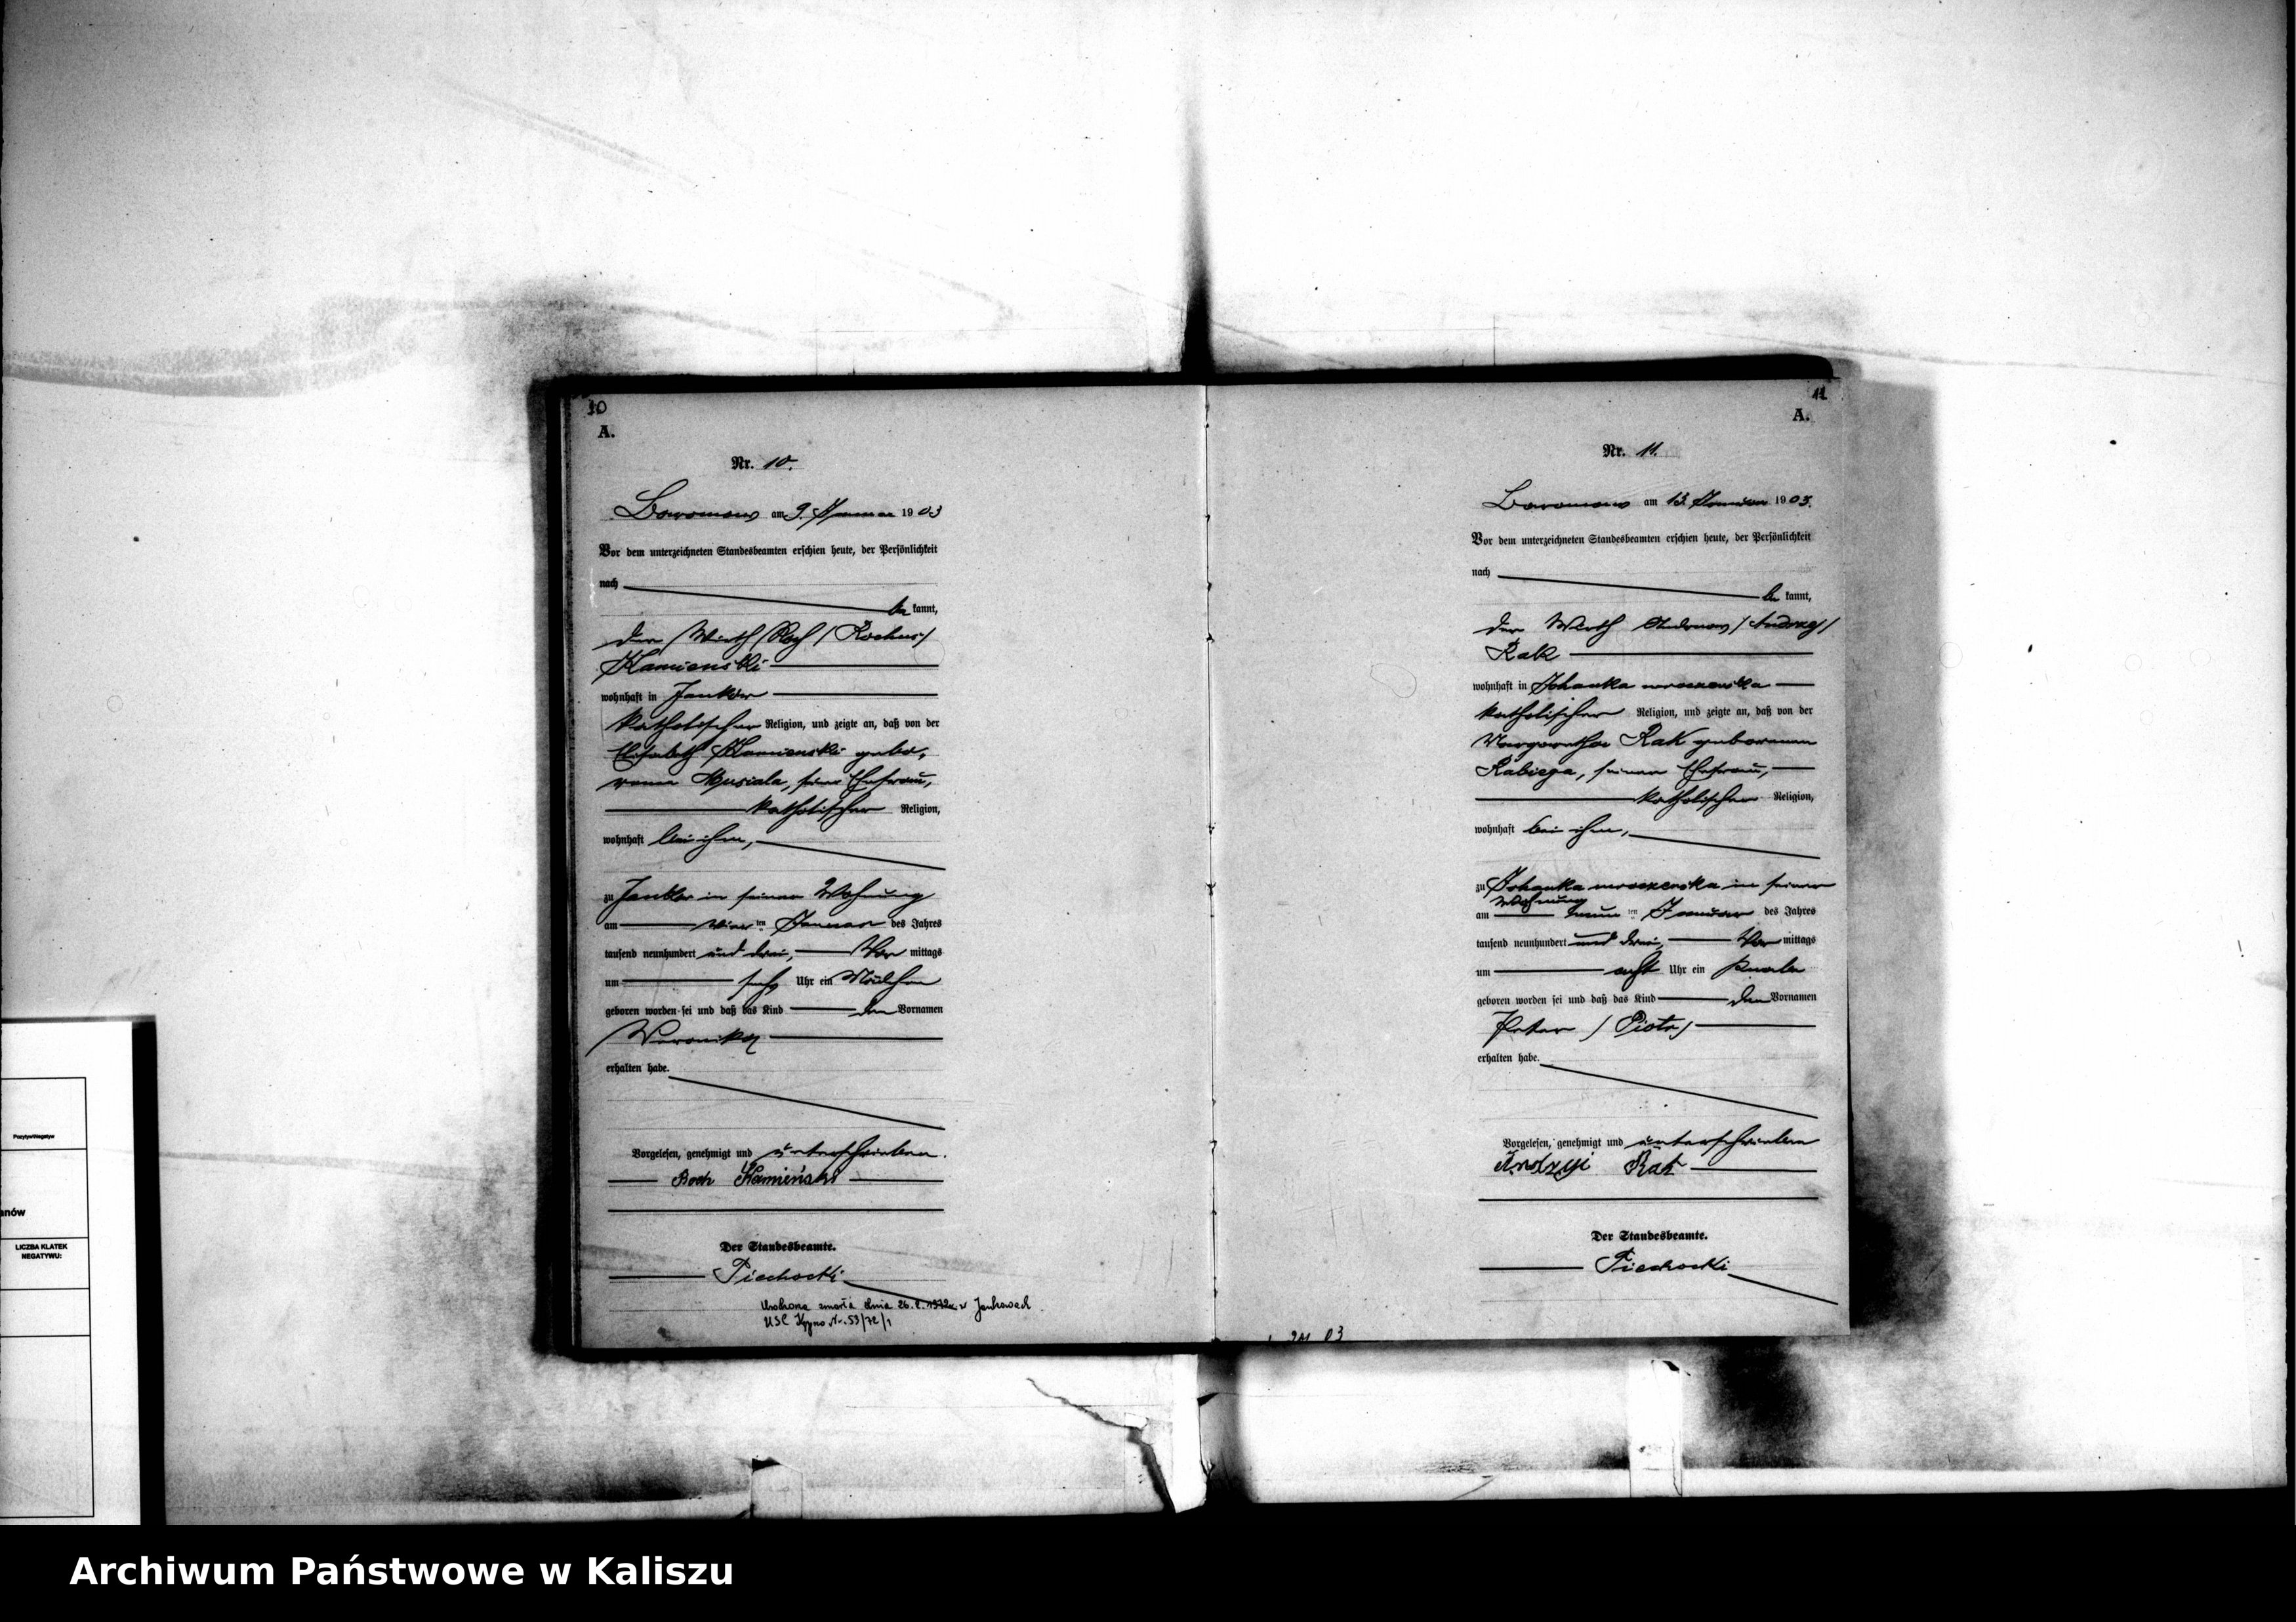 10
A.
Nr. 10.
Baranow am 9. Januar 1903
Vor dem unterzeichneten Standesbeamten erschien heute, der Persönlichkeit
nach
be kannt,
der Wirth Roch (Rochus)
Kamienski
wohnhaft in Janków
katholischer Religion, und zeigte an, daß von der
Elisabeth Kamienski gebo-
renen Musiala, seiner Ehefrau,
katholischer Religion,
wohnhaft bei ihm,
zu Janków in seiner Wohnung
am vier ten Januar des Jahres
tausend neunhundert und drei, Vor mittags
um sechs Uhr ein Mädchen
geboren worden sei und daß das Kind den Vornamen
Veronika
erhalten habe.
Vorgelesen, genehmigt und unterschrieben.
Roch Kamieński
Der Standesbeamte.
Piechocki
zmarła dnia 26. 1972 r. w Jankowach
USC Nr. 53/72/1
11
A.
Nr. 11.
Baranow am 13. Januar 1903.
Vor dem unterzeichneten Standesbeamten erschien heute, der Persönlichkeit
nach
be kannt,
der Wirth Andreas (Andrzej)
Rak
wohnhaft in mroczenska
katholischer Religion, und zeigte an, daß von der
Margarethe Rak geborenen
Kabiega, seiner Ehefrau,
katholischer Religion,
wohnhaft bei ihm,
zu mroczenska in seiner
Wohnung
am neun ten Januar des Jahres
tausend neunhundert und drei, Vor mittags
um acht Uhr ein Knabe
geboren worden sei und daß das Kind den Vornamen
Peter (Piotr)
erhalten habe.
Vorgelesen, genehmigt und unterschrieben
Andrzji Rak
Der Standesbeamte.
Piechocki
Pozytyw/Negatyw
anów
LICZBA KLATEK
NEGATYWU:
Archiwum Państwowe w Kaliszu